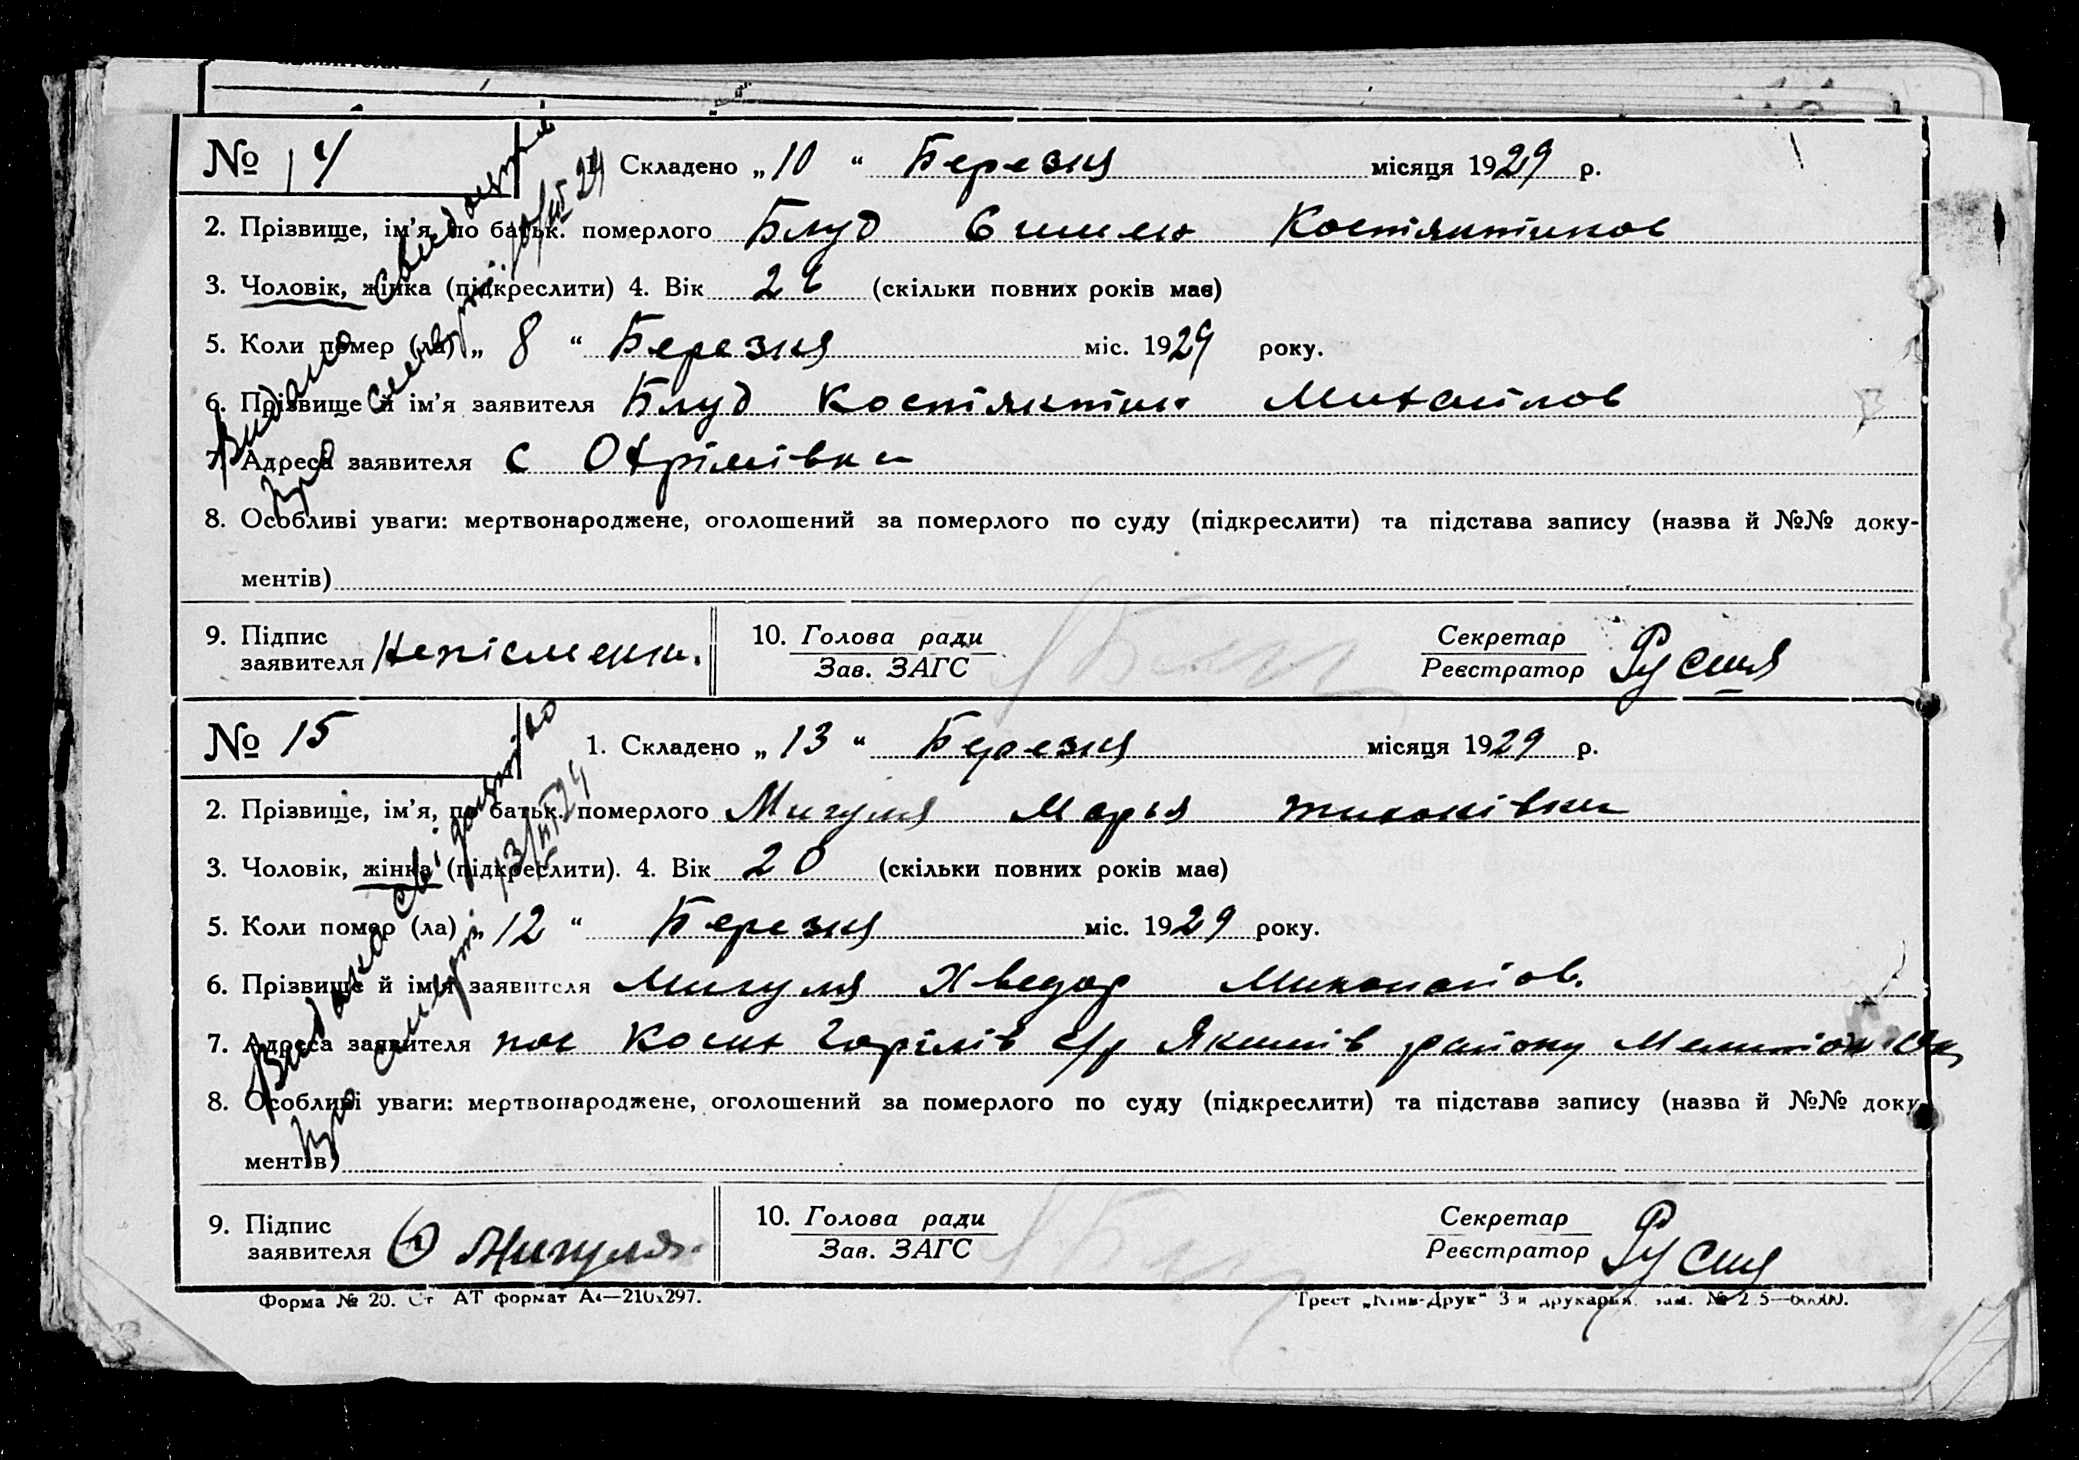 № 14
1. Складено „10“ Березня місяця 1929 р.
2. Прізвище, ім’я, по батьк. померлого Блуд Костянтинов
3. Чоловік, жінка (підкреслити) 4. Вік 2 (скільки повних років має)
5. Коли помер (ла) „8“ Березня міс. 1929 року.
6. Прізвище й ім’я заявителя Блуд Костянтин Михайлов
7. Адреса заявителя с Охрімівка
8. Особливі уваги: мертвонароджене, оголошений за померлого по суду (підкреслити) та підстава запису (назва й №№ доку-
ментів)
Видано свидоцтво
про смерть 10/III 29
9. Підпис
заявителя Неписьменн.
10. Голова ради
Зав. ЗАГС
Секретар
Реєстратор
№ 15
1. Складено „13“ Березня місяця 1929 р.
2. Прізвище, ім’я, по батьк. померлого Мигуля Марья
3. Чоловік, жінка (підкреслити). 4. Вік 20 (скільки повних років має)
5. Коли помер (ла) „12“ Березня міс. 1929 року.
6. Прізвище й ім’я заявителя Мигуля Хведор Миколайов.
7. Адреса заявителя пос с/р Якимів району
8. Особливі уваги: мертвонароджене, оголошений за померлого по суду (підкреслити) та підстава запису (назва й №№ доку
ментів)
Видано свідоцтво
про смерть 13/III 29
9. Підпис
заявителя Ф Мигуля
10. Голова ради
Зав. ЗАГС
Секретар
Реєстратор
Форма № 20. Ст АТ формат А4—210x297.
Трест „Київ-Друк“ 3